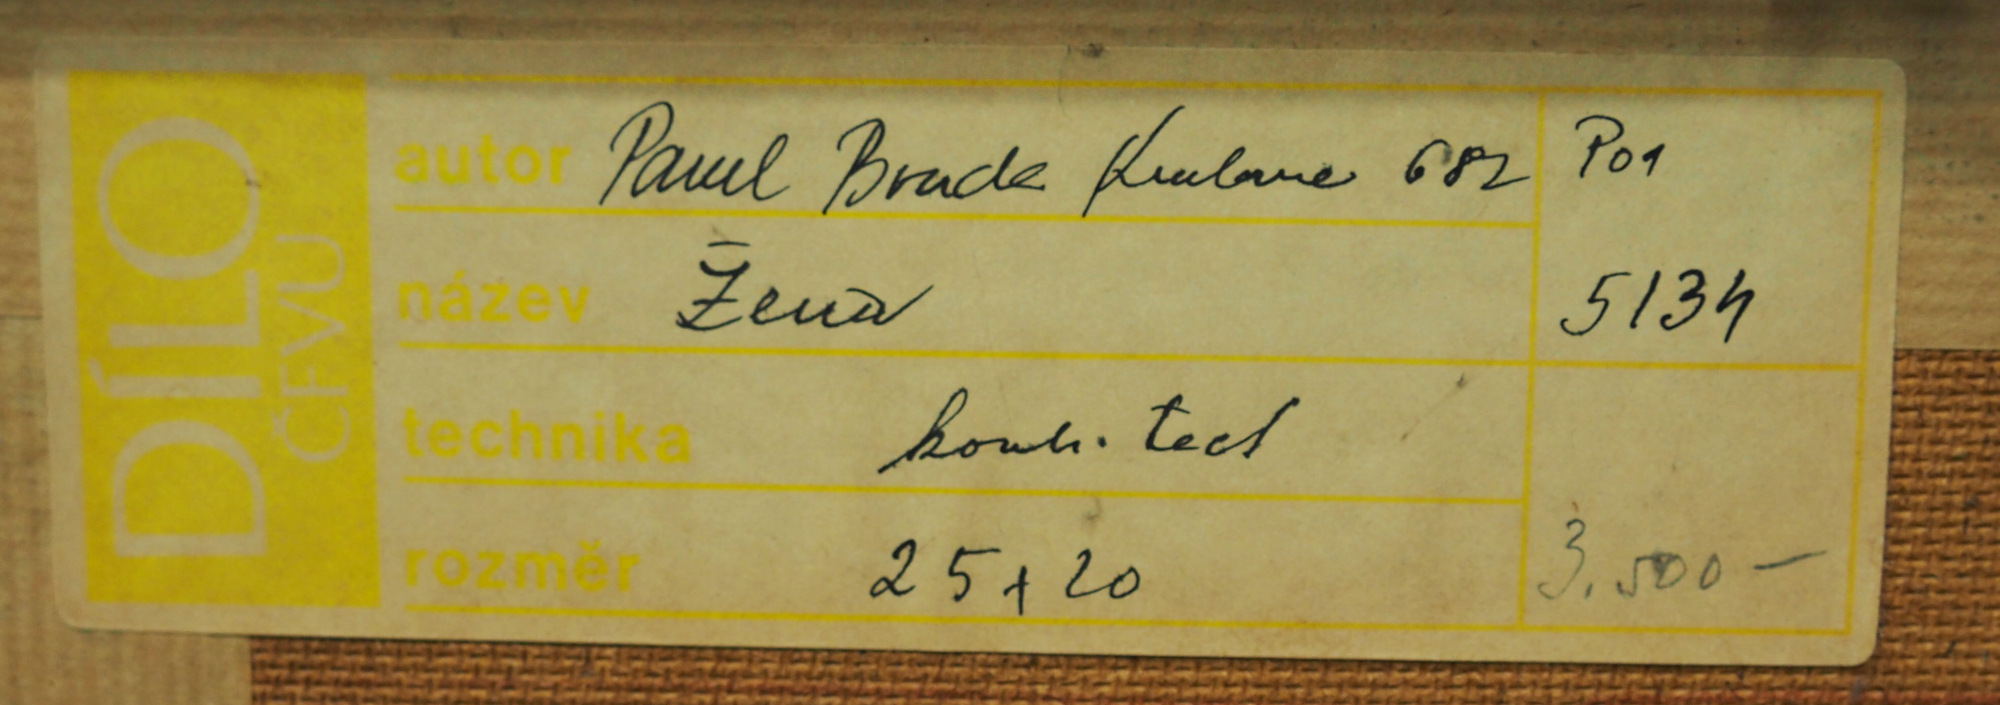 DÍLO
ČFVU
autor Pavel Brada 682 P01
název Žena 5134
technika komb. tech
rozměr 25 x 20 3.500 —